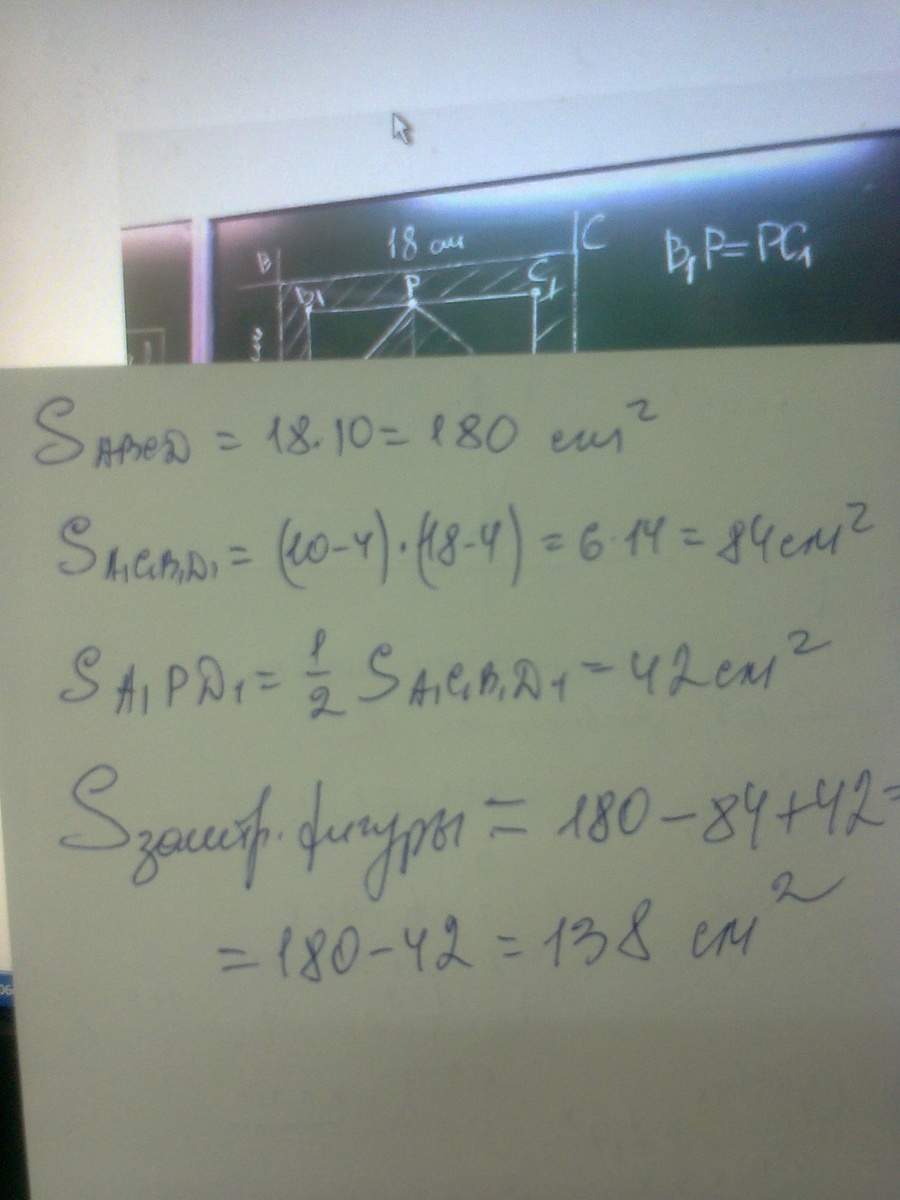 18 см
B
C
B₁P=PC₁
B₁
P
C₁
S ABCD = 18·10 = 180 см²
S A₁C₁B₁D₁ = (10-4)·(18-4) = 6·14 = 84 см²
S A₁PD₁ = 1/2 S A₁C₁B₁D₁ = 42 см²
S заштр. фигуры = 180-84+42=
= 180-42 = 138 см²